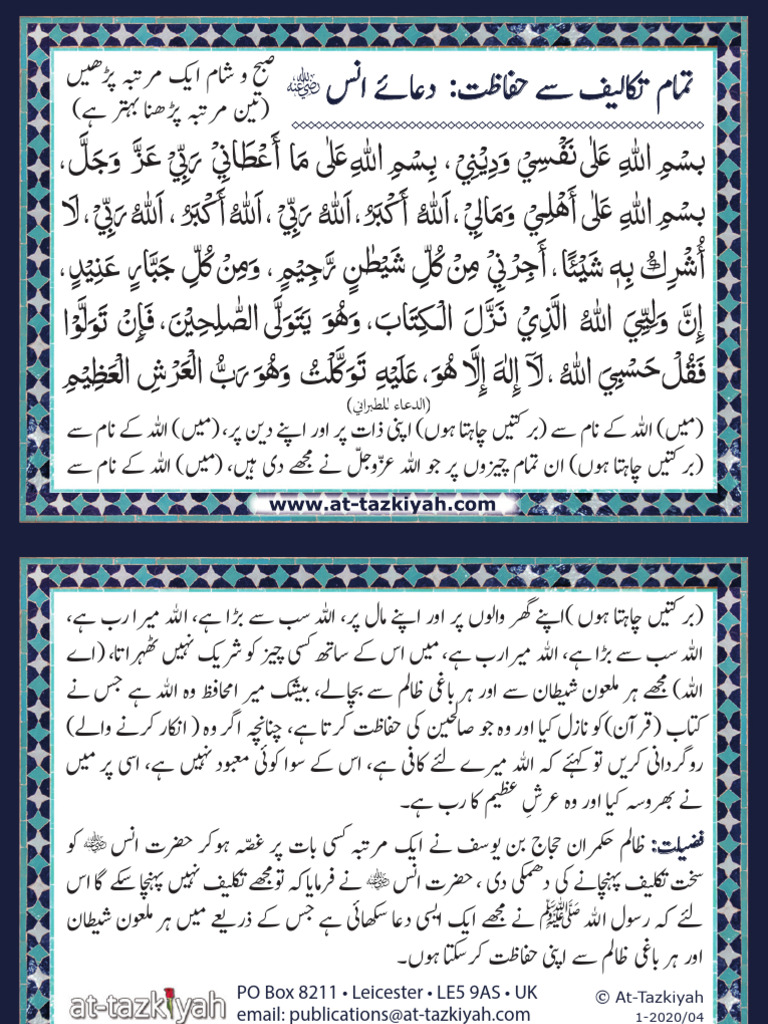 تمام تکالیف سے حفاظت: دعائے انس رضی اللہ عنہ
صبح و شام ایک مرتبہ پڑھیں
(تین مرتبہ پڑھنا بہتر ہے)
بِسْمِ اللهِ عَلٰى نَفْسِيْ وَدِيْنِيْ، بِسْمِ اللهِ عَلٰى مَا أَعْطَانِيْ رَبِّيْ عَزَّ وَجَلَّ،
بِسْمِ اللهِ عَلٰى أَهْلِيْ وَمَالِيْ، اَللهُ أَكْبَرُ، اَللهُ رَبِّيْ، اَللهُ أَكْبَرُ، اَللهُ رَبِّيْ، لَا
أُشْرِكُ بِهٖ شَيْئًا، أَجِرْنِيْ مِنْ كُلِّ شَيْطٰنٍ رَّجِيْمٍ، وَمِنْ كُلِّ جَبَّارٍ عَنِيْدٍ،
إِنَّ وَلِيِّيَ اللهُ الَّذِيْ نَزَّلَ الْكِتَابَ، وَهُوَ يَتَوَلَّى الصّٰلِحِيْنَ، فَإِنْ تَوَلَّوْا
فَقُلْ حَسْبِيَ اللهُ، لَآ إِلٰهَ إِلَّا هُوَ، عَلَيْهِ تَوَكَّلْتُ وَهُوَ رَبُّ الْعَرْشِ الْعَظِيْمِ
(الدعاء للطبراني)
(میں) اللہ کے نام سے (برکتیں چاہتا ہوں) اپنی ذات پر اور اپنے دین پر، (میں) اللہ کے نام سے
(برکتیں چاہتا ہوں) ان تمام چیزوں پر جو اللہ عزّوجلّ نے مجھے دی ہیں، (میں) اللہ کے نام سے
www.at-tazkiyah.com
(برکتیں چاہتا ہوں) اپنے گھر والوں پر اور اپنے مال پر، اللہ سب سے بڑا ہے، اللہ میرا رب ہے،
اللہ سب سے بڑا ہے، اللہ میرا رب ہے، میں اس کے ساتھ کسی چیز کو شریک نہیں ٹھہراتا، (اے
اللہ) مجھے ہر ملعون شیطان سے اور ہر باغی ظالم سے بچالے، بیشک میرا محافظ وہ اللہ ہے جس نے
کتاب (قرآن) کو نازل کیا اور وہ جو صالحین کی حفاظت کرتا ہے، چنانچہ اگر وہ (انکار کرنے والے)
روگردانی کریں تو کہئے کہ اللہ میرے لئے کافی ہے، اس کے سوا کوئی معبود نہیں ہے، اسی پر میں
نے بھروسہ کیا اور وہ عرشِ عظیم کا رب ہے۔
فضیلت: ظالم حکمران حجاج بن یوسف نے ایک مرتبہ کسی بات پر غصّہ ہوکر حضرت انس رضی اللہ عنہ کو
سخت تکلیف پہنچانے کی دھمکی دی، حضرت انس رضی اللہ عنہ نے فرمایا کہ تو مجھے تکلیف نہیں پہنچا سکے گا اس
لئے کہ رسول اللہ ﷺ نے مجھے ایک ایسی دعا سکھائی ہے جس کے ذریعے میں ہر ملعون شیطان
اور ہر باغی ظالم سے اپنی حفاظت کرسکتا ہوں۔
at-tazkiyah
PO Box 8211 • Leicester • LE5 9AS • UK
email: publications@at-tazkiyah.com
© At-Tazkiyah
1-2020/04